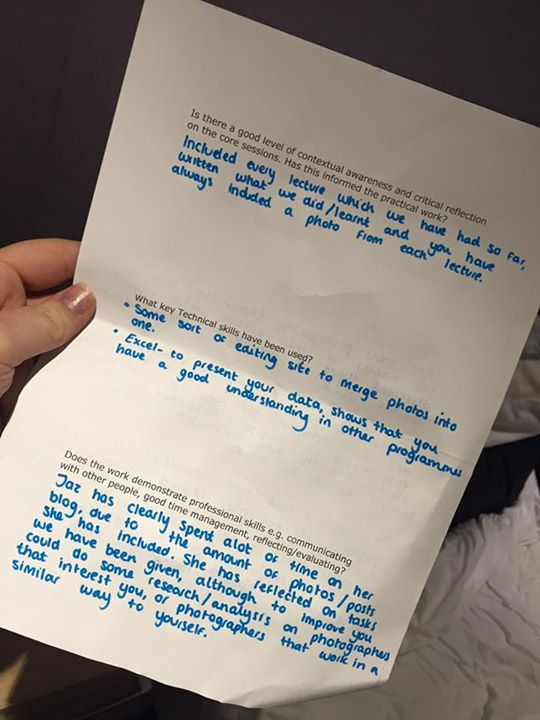 Is there a good level of contextual awareness and critical reflection
on the core sessions. Has this informed the practical work?
Included every lecture which we have had so far,
written what we did/learnt and you have
always included a photo from each lecture.
What key Technical skills have been used?
• Some sort of editing site to merge photos into
one.
• Excel- to present your data, shows that you
have a good understanding in other programmes
Does the work demonstrate professional skills e.g. communicating
with other people, good time management, reflecting/evaluating?
Jaz has clearly spent alot of time on her
blog, due to the amount of photos/posts
she has included. She has reflected on tasks
we have been given, although to improve you
could do some research/analysis on photographers
that interest you, or photographers that work in a
similar way to yourself.